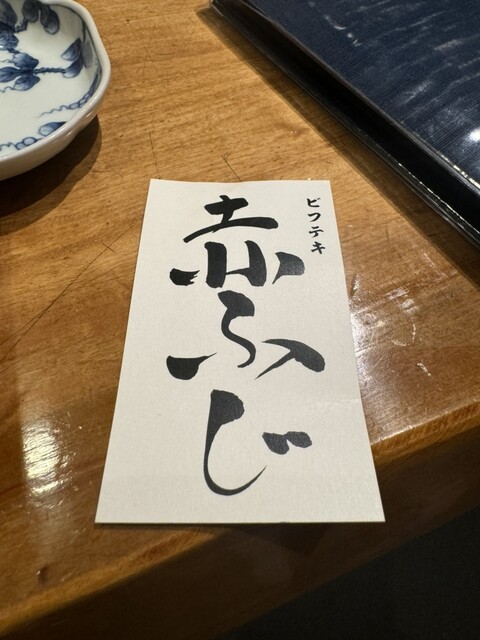 ビフテキ
赤ふじ